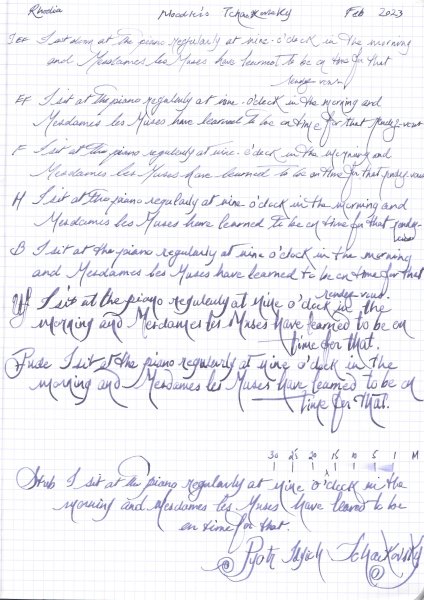 Rhodia Moodkis Tchaikovsky Feb 2023
IEF I sit down at the piano regularly at nine-o'clock in the morning
and Mesdames les Muses have learned to be on time for that
rendez-vous
EF I sit at the piano regularly at nine-o'clock in the morning and
Mesdames les Muses have learned to be on time for that rendez-vous
F I sit at the piano regularly at nine-o'clock in the morning and
Mesdames les Muses have learned to be on time for that rendez-vous
M I sit at the piano regularly at nine o'clock in the morning and
Mesdames les Muses have learned to be on time for that rendez-
vous
B I sit at the piano regularly at nine o'clock in the morning
and Mesdames les Muses have learned to be on time for that
rendez-vous.
I sit at the piano regularly at nine o'clock in the
morning and Mesdames les Muses have learned to be on
time for that.
Rude I sit at the piano regularly at nine o'clock in the
morning and Mesdames les Muses have learned to be on
time for that.
30 25 20 15 10 5 1 M
Stub I sit at the piano regularly at nine o'clock in the
morning and Mesdames les Muses have learned to be
on time for that.
@ Pyotr Ilyich Tchaikovsky
@